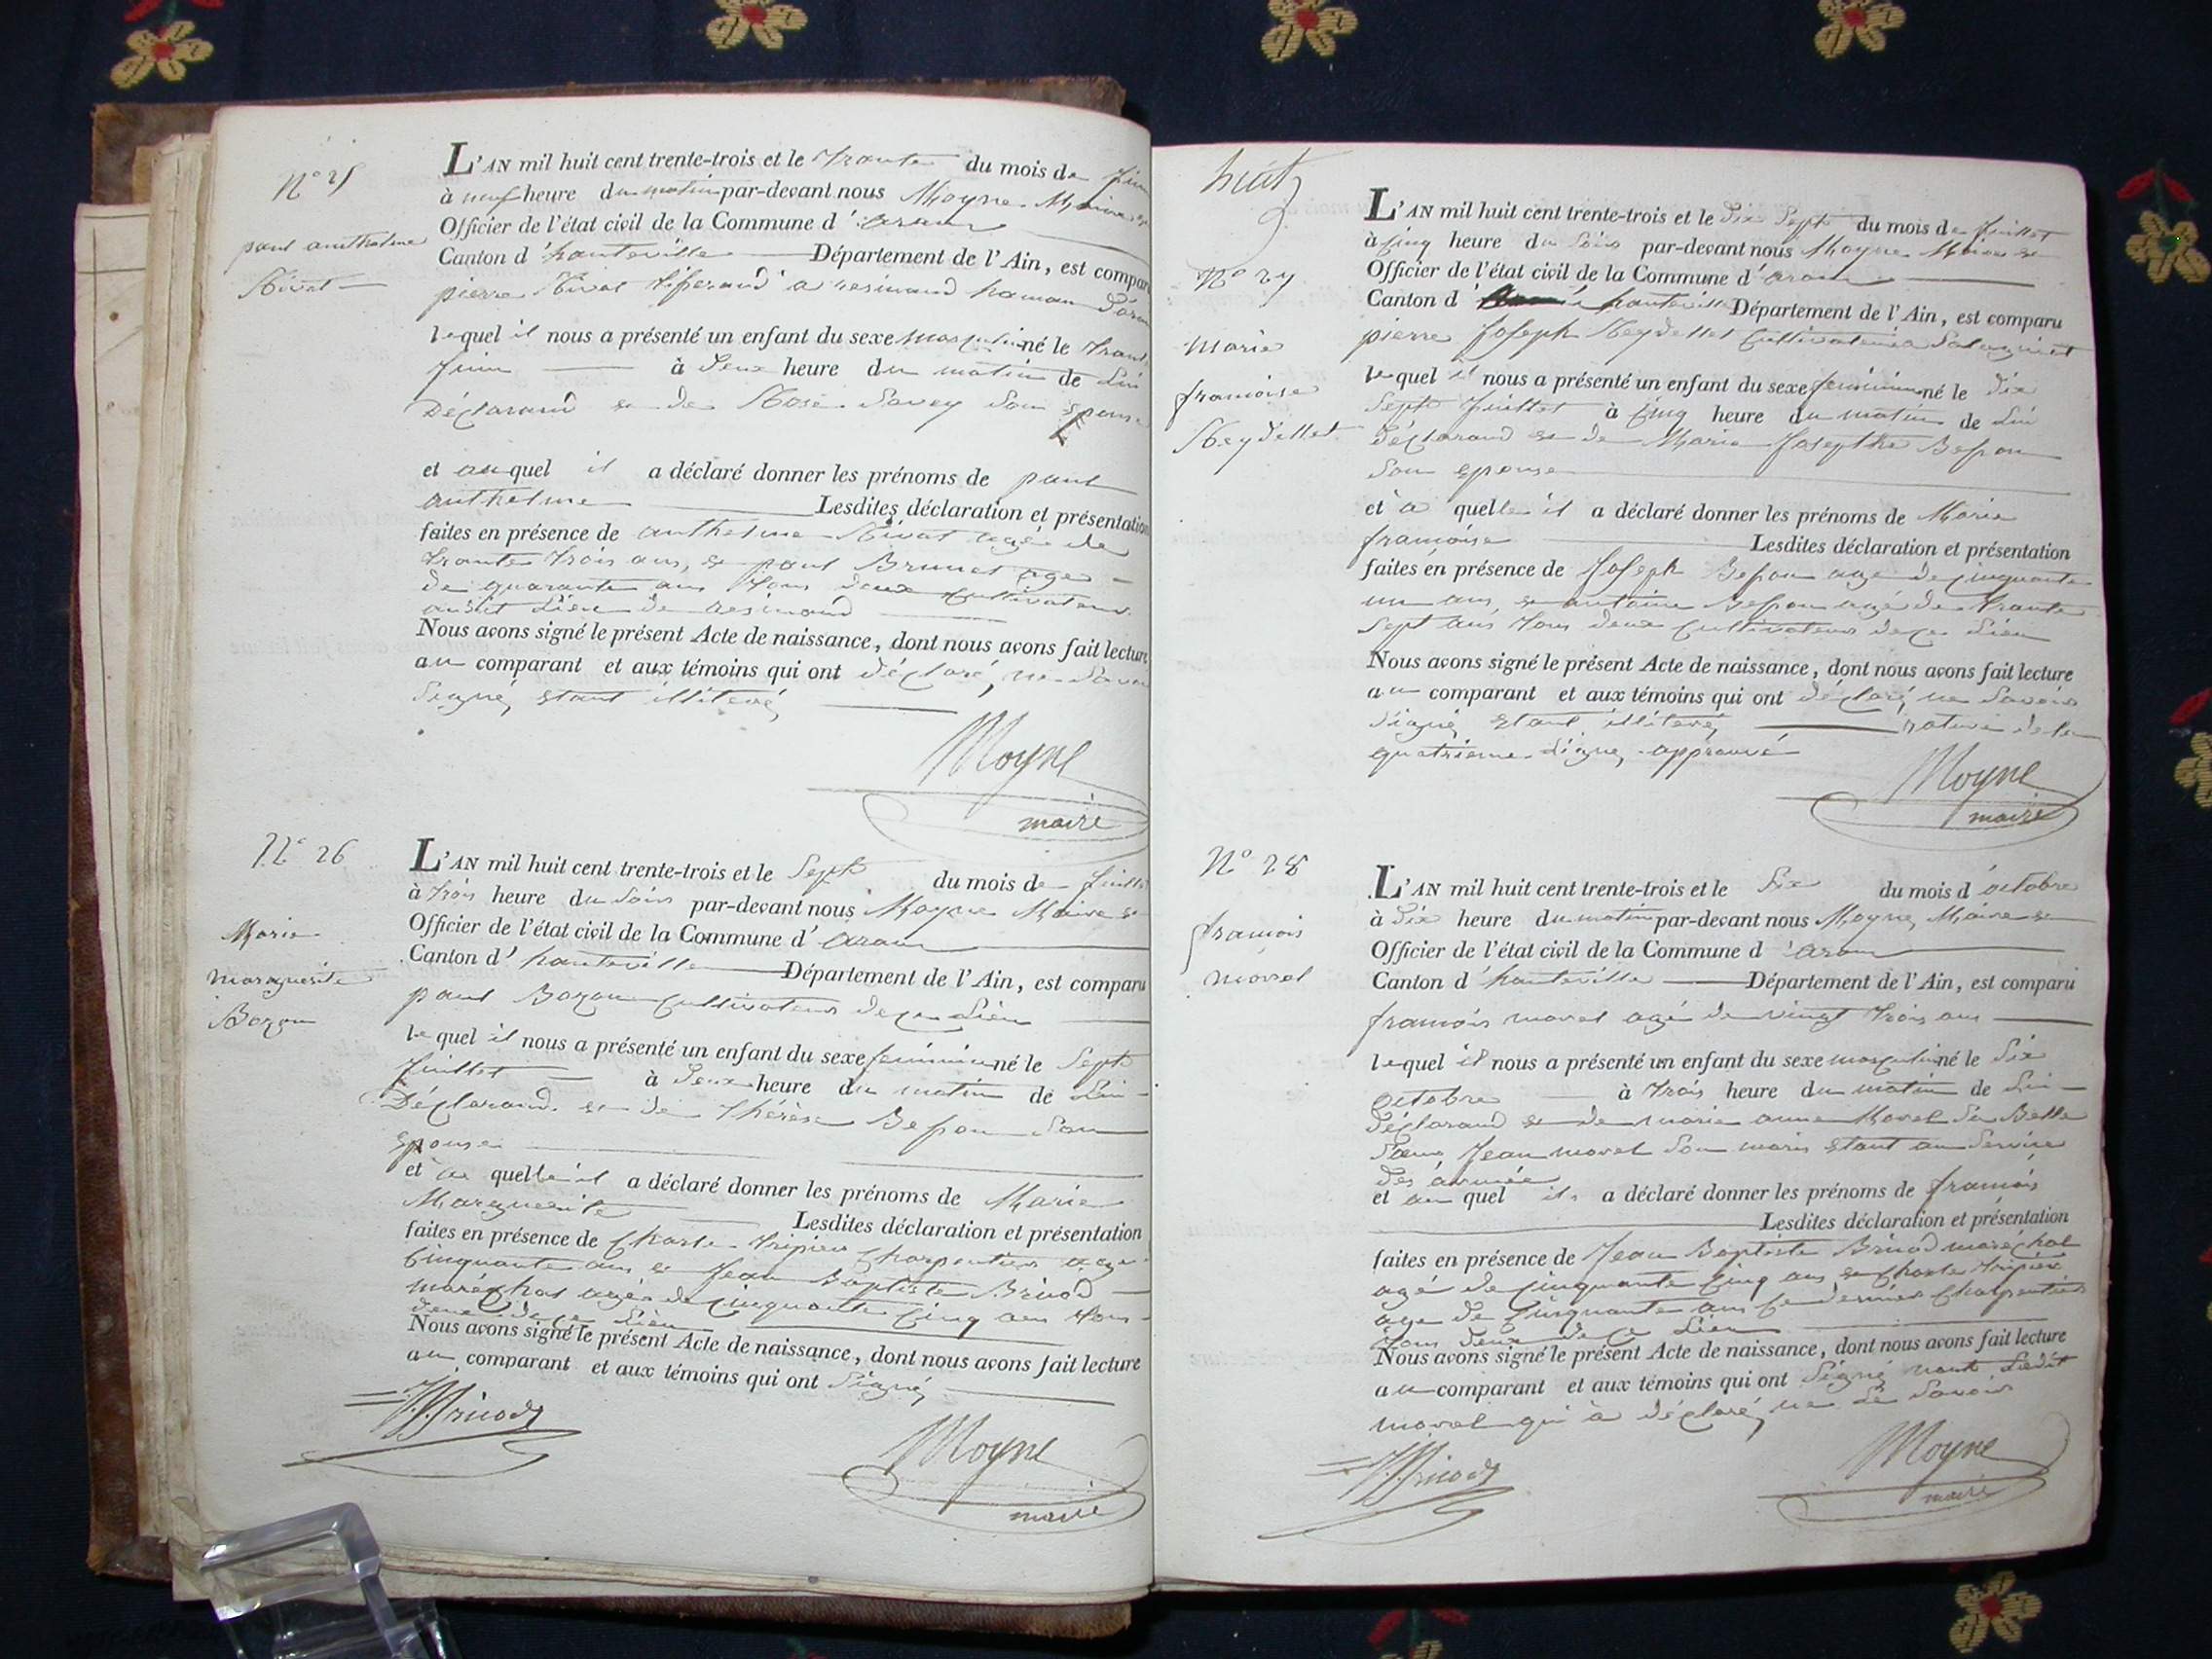 N° 25
paul anthelme
Rivat
L'AN mil huit cent trente-trois et le trante du mois de juin
à neuf heure du matin par-devant nous Moyne Maire et
Officier de l'état civil de la Commune d'aran
Canton d'hauteville Département de l'Ain, est compar
pierre Rivat a resinand hamau d'aran
lequel il nous a présenté un enfant du sexe masculin né le trante
juin à deux heure du matin de Lui
Déclarand et de Rose Savey Son epouse
et auquel il a déclaré donner les prénoms de paul
anthelme Lesdites déclaration et présentation
faites en présence de anthelme Rivat agé de
trante trois ans, et paul Brunet age
de quarante ans tous deux Cultivateurs
audit Lieu de resinand
Nous avons signé le présent Acte de naissance, dont nous avons fait lecture
au comparant et aux témoins qui ont déclaré, ne Savoir
Signé, etant illiteré
Moyne
maire
N° 26
Marie
marguerite
Bozon
L'AN mil huit cent trente-trois et le Sept du mois de juillet
à trois heure du Soir par-devant nous Moyne Maire et
Officier de l'état civil de la Commune d'aran
Canton d'hauteville Département de l'Ain, est comparu
paul Bozon Cultivateur de ce Lieu
lequel il nous a présenté un enfant du sexe feminin né le Sept
juillet à deux heure du matin de Lui
Déclarand et de thérèse Besson Son
epouse
et a quelle il a déclaré donner les prénoms de Marie
Marguerite Lesdites déclaration et présentation
faites en présence de Charle tripier Charpentier age
Cinquante ans et Jean Baptiste Brucod
maréchal agé de Cinquante Cinq ans tous
deux de ce Lieu
Nous avons signé le présent Acte de naissance, dont nous avons fait lecture
au comparant et aux témoins qui ont Signé
Moyne
maire
huit
N° 27
Marie
francoise
Reydellet
L'AN mil huit cent trente-trois et le dix Sept du mois de juillet
à Cinq heure du Soir par-devant nous Moyne Maire et
Officier de l'état civil de la Commune d'aran
Canton d'hauteville Département de l'Ain, est comparu
pierre Joseph Reydellet Cultivateur
lequel il nous a présenté un enfant du sexe feminin né le dix
Sept juillet à Cinq heure du matin de Lui
déclarand et de Marie Josepthe Besson
Son epouse
et à quelle il a déclaré donner les prénoms de Marie
francoise Lesdites déclaration et présentation
faites en présence de Joseph Besson agé de Cinquante
un ans, et antoine Besson agé de trante
Sept ans tous deux Cultivateurs de ce Lieu
Nous avons signé le présent Acte de naissance, dont nous avons fait lecture
au comparant et aux témoins qui ont déclaré, ne Savoir
Signé etant illiteré rature de la
quatrieme Ligne approuvé
Moyne
maire
N° 28
francois
morel
L'AN mil huit cent trente-trois et le Six du mois d'octobre
à dix heure du matin par-devant nous Moyne, Maire et
Officier de l'état civil de la Commune d'aran
Canton d'hauteville Département de l'Ain, est comparu
francois morel agé de vingt trois ans
lequel il nous a présenté un enfant du sexe masculin né le Six
octobre à trois heure du matin de Lui
déclarand et de marie anne Morel Sa Belle
Sœur Jean morel Son maris etant au Service
des armée
et au quel il a déclaré donner les prénoms de francois
Lesdites déclaration et présentation
faites en présence de Jean Baptiste Brucod maréchal
agé de Cinquante Cinq ans et Charle tripier
age de Cinquante ans Ce dernier Charpentier
tous deux de ce Lieu
Nous avons signé le présent Acte de naissance, dont nous avons fait lecture
au comparant et aux témoins qui ont Signé Ledit
morel qui à déclaré, ne Le Savoir
Moyne
maire